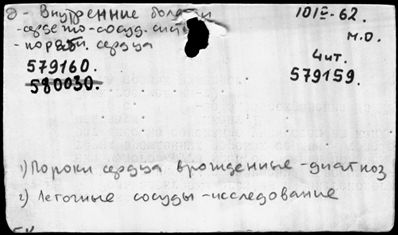 д - Внутренние болезни
- сердечно-сосуд. сист
- пороки сердца
101Е-62.
м.о.
4 чит.
579160.
579159.
580030.
1) Пороки сердца врожденные - диагноз
2) Легочные сосуды - исследование